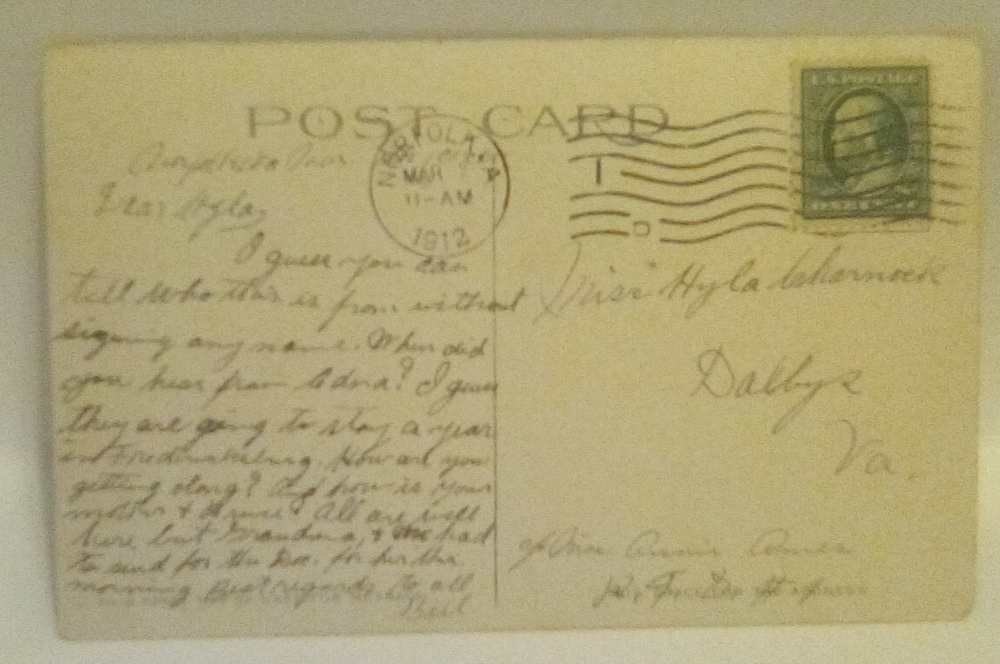 POST CARD
NORFOLK, VA
MAR
11-AM
1912
1
D
U.S. POSTAGE
Dear Hyla,
I guess you can
tell who this is from without
signing any name. When did
you hear from Edna? I guess
they are going to stay a year
in Fredericksburg. How are you
getting along? And how is your
mother & All are well
here but Grandma, & we had
to send for the Doc. for her this
morning Best regards to all
Miss Hyla Charnock
Dalbys
Va.
c/o Miss Annie Ames